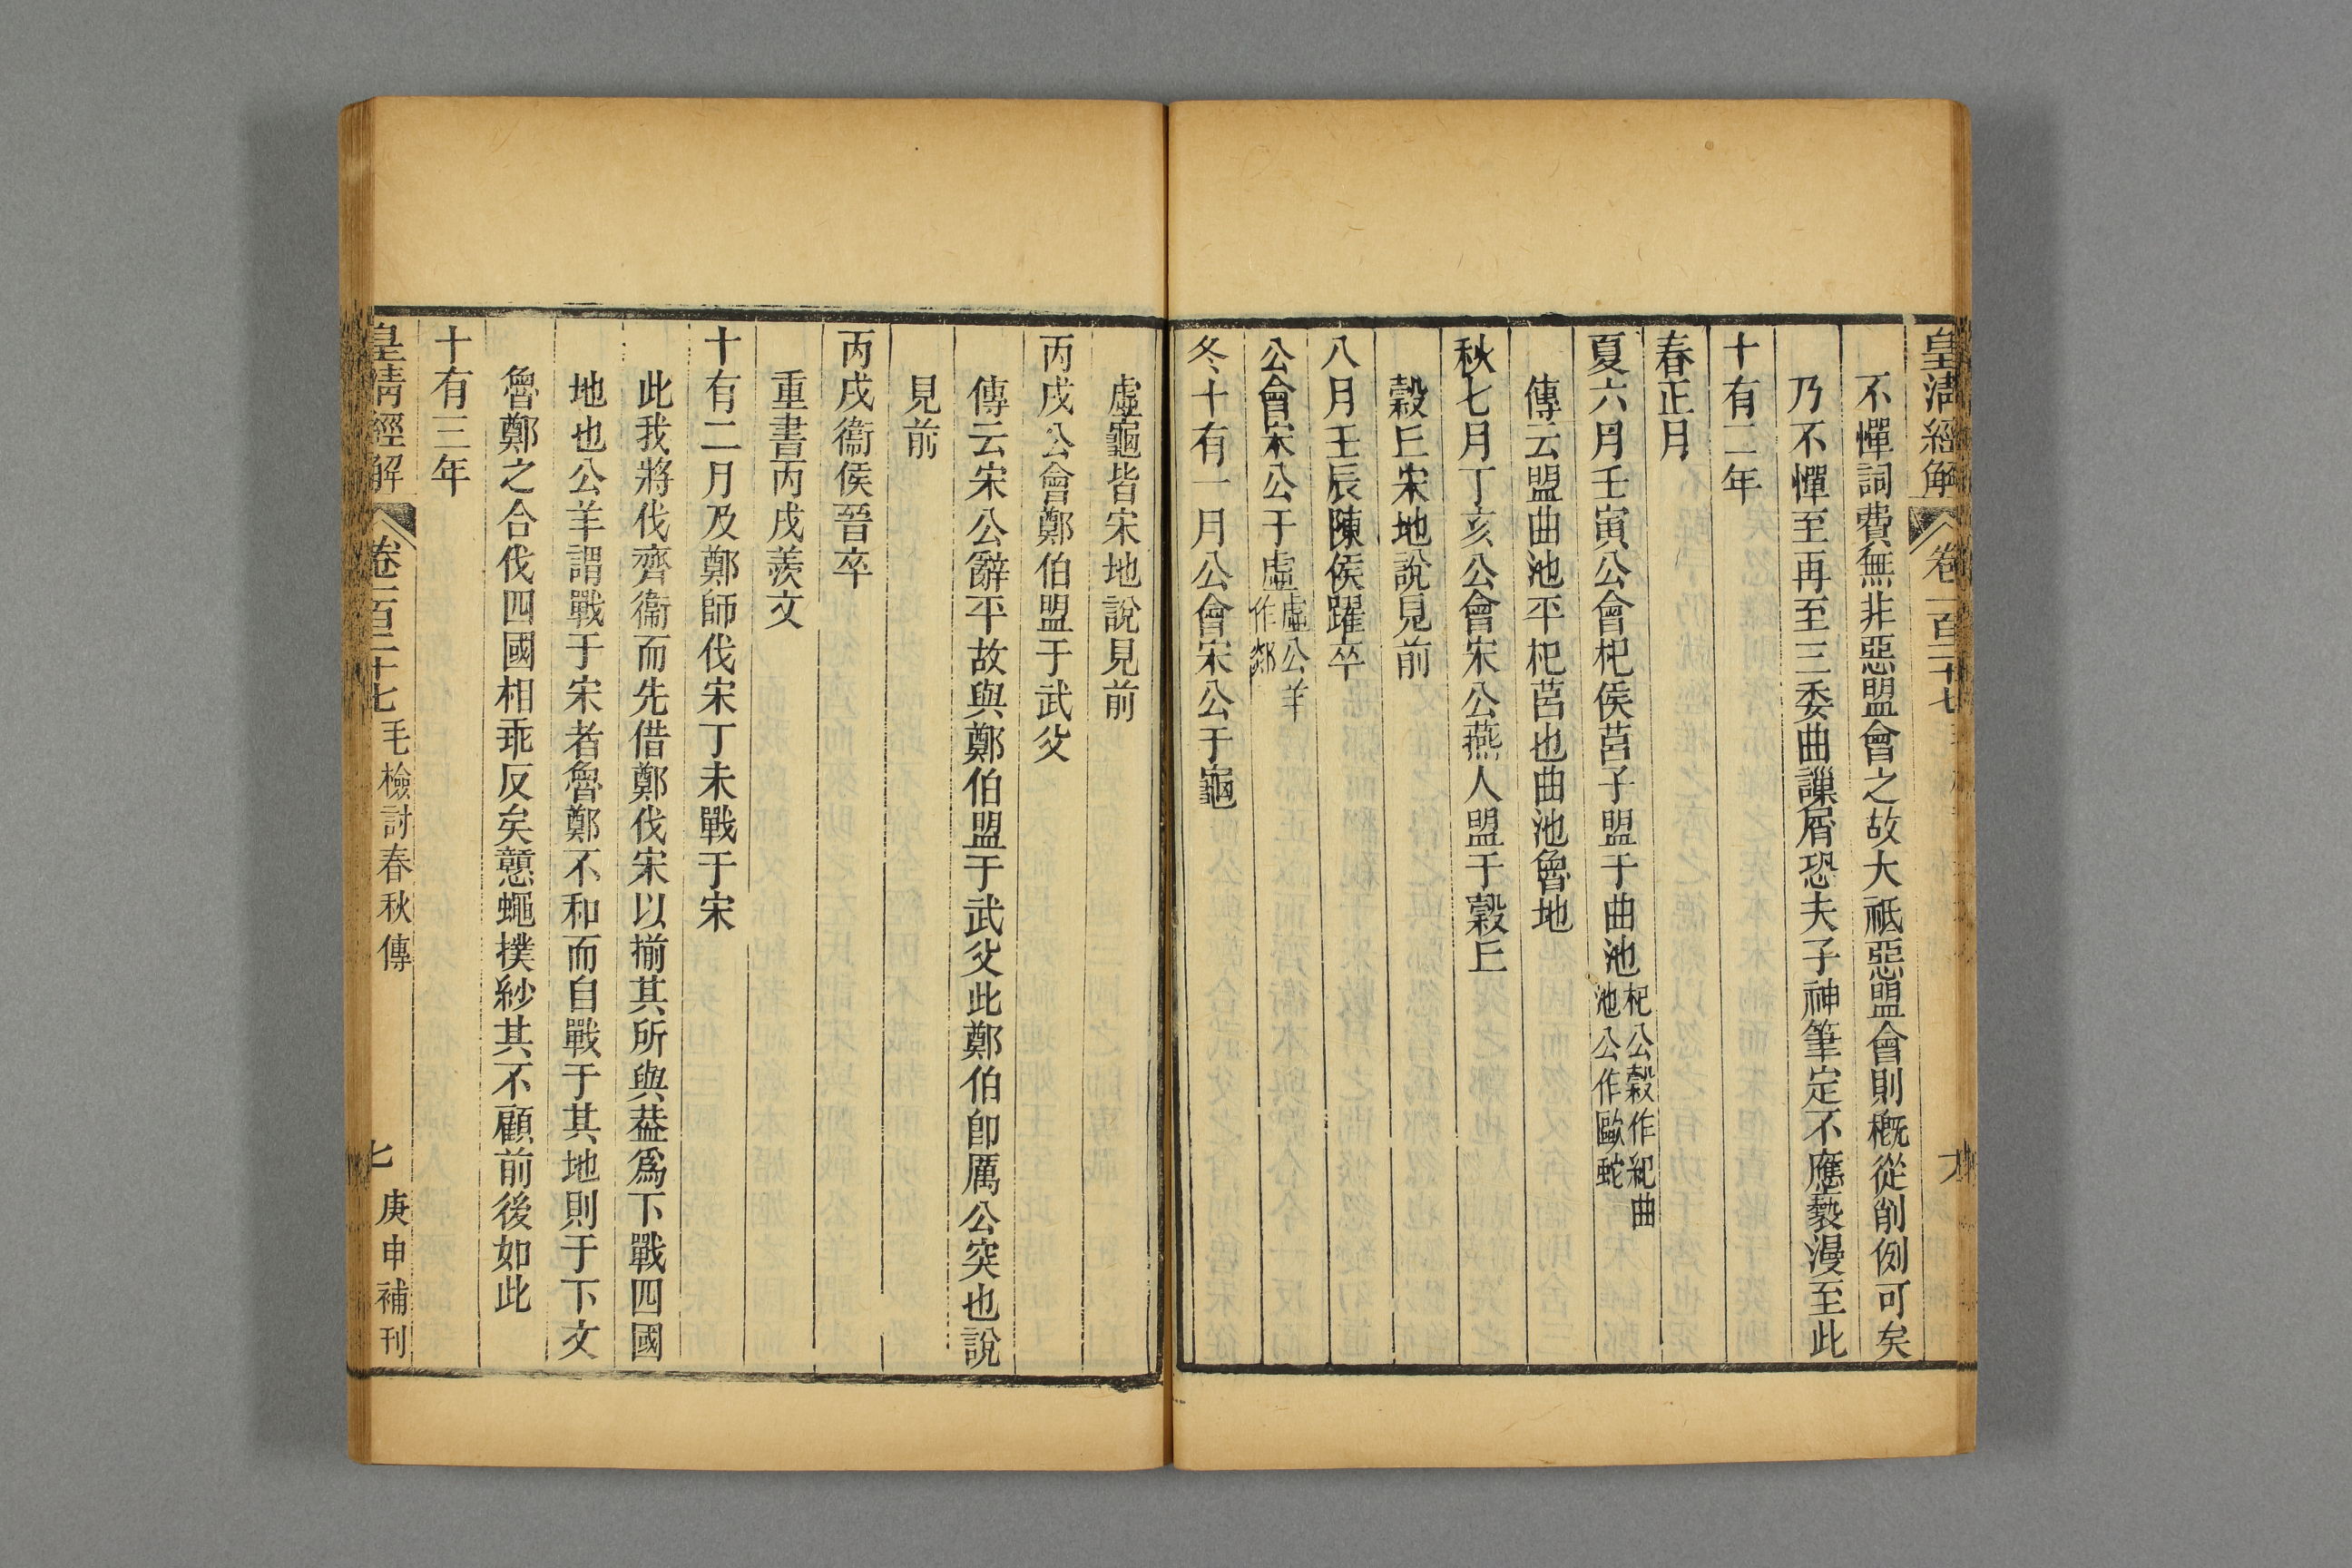 皇清經解 卷一百二十七
不憚詞費無非惡盟會之故大祗惡盟會則概從削例可矣
乃不憚至再至三委曲謰屑恐夫子神筆定不應褻漫至此
十有二年
春正月
夏六月壬寅公會杞侯莒子盟于曲池杞公穀作紀曲
池公作歐蛇
傳云盟曲池平杞莒也曲池魯地
秋七月丁亥公會宋公燕人盟于穀丘
穀丘宋地說見前
八月壬辰陳侯躍卒
公會宋公于虛虛公羊
作郯
冬十有一月公會宋公于龜
虛龜皆宋地說見前
丙戌公會鄭伯盟于武父
傳云宋公辭平故與鄭伯盟于武父此鄭伯卽厲公突也說
見前
丙戌衞侯晉卒
重書丙戌羨文
十有二月及鄭師伐宋丁未戰于宋
此我將伐齊衞而先借鄭伐宋以揃其所與葢爲下戰四國
地也公羊謂戰于宋者魯鄭不和而自戰于其地則于下文
魯鄭之合伐四國相乖反矣戇蠅撲紗其不顧前後如此
十有三年
皇清經解 卷一百二十七 毛檢討春秋傳 七 庚申補刊